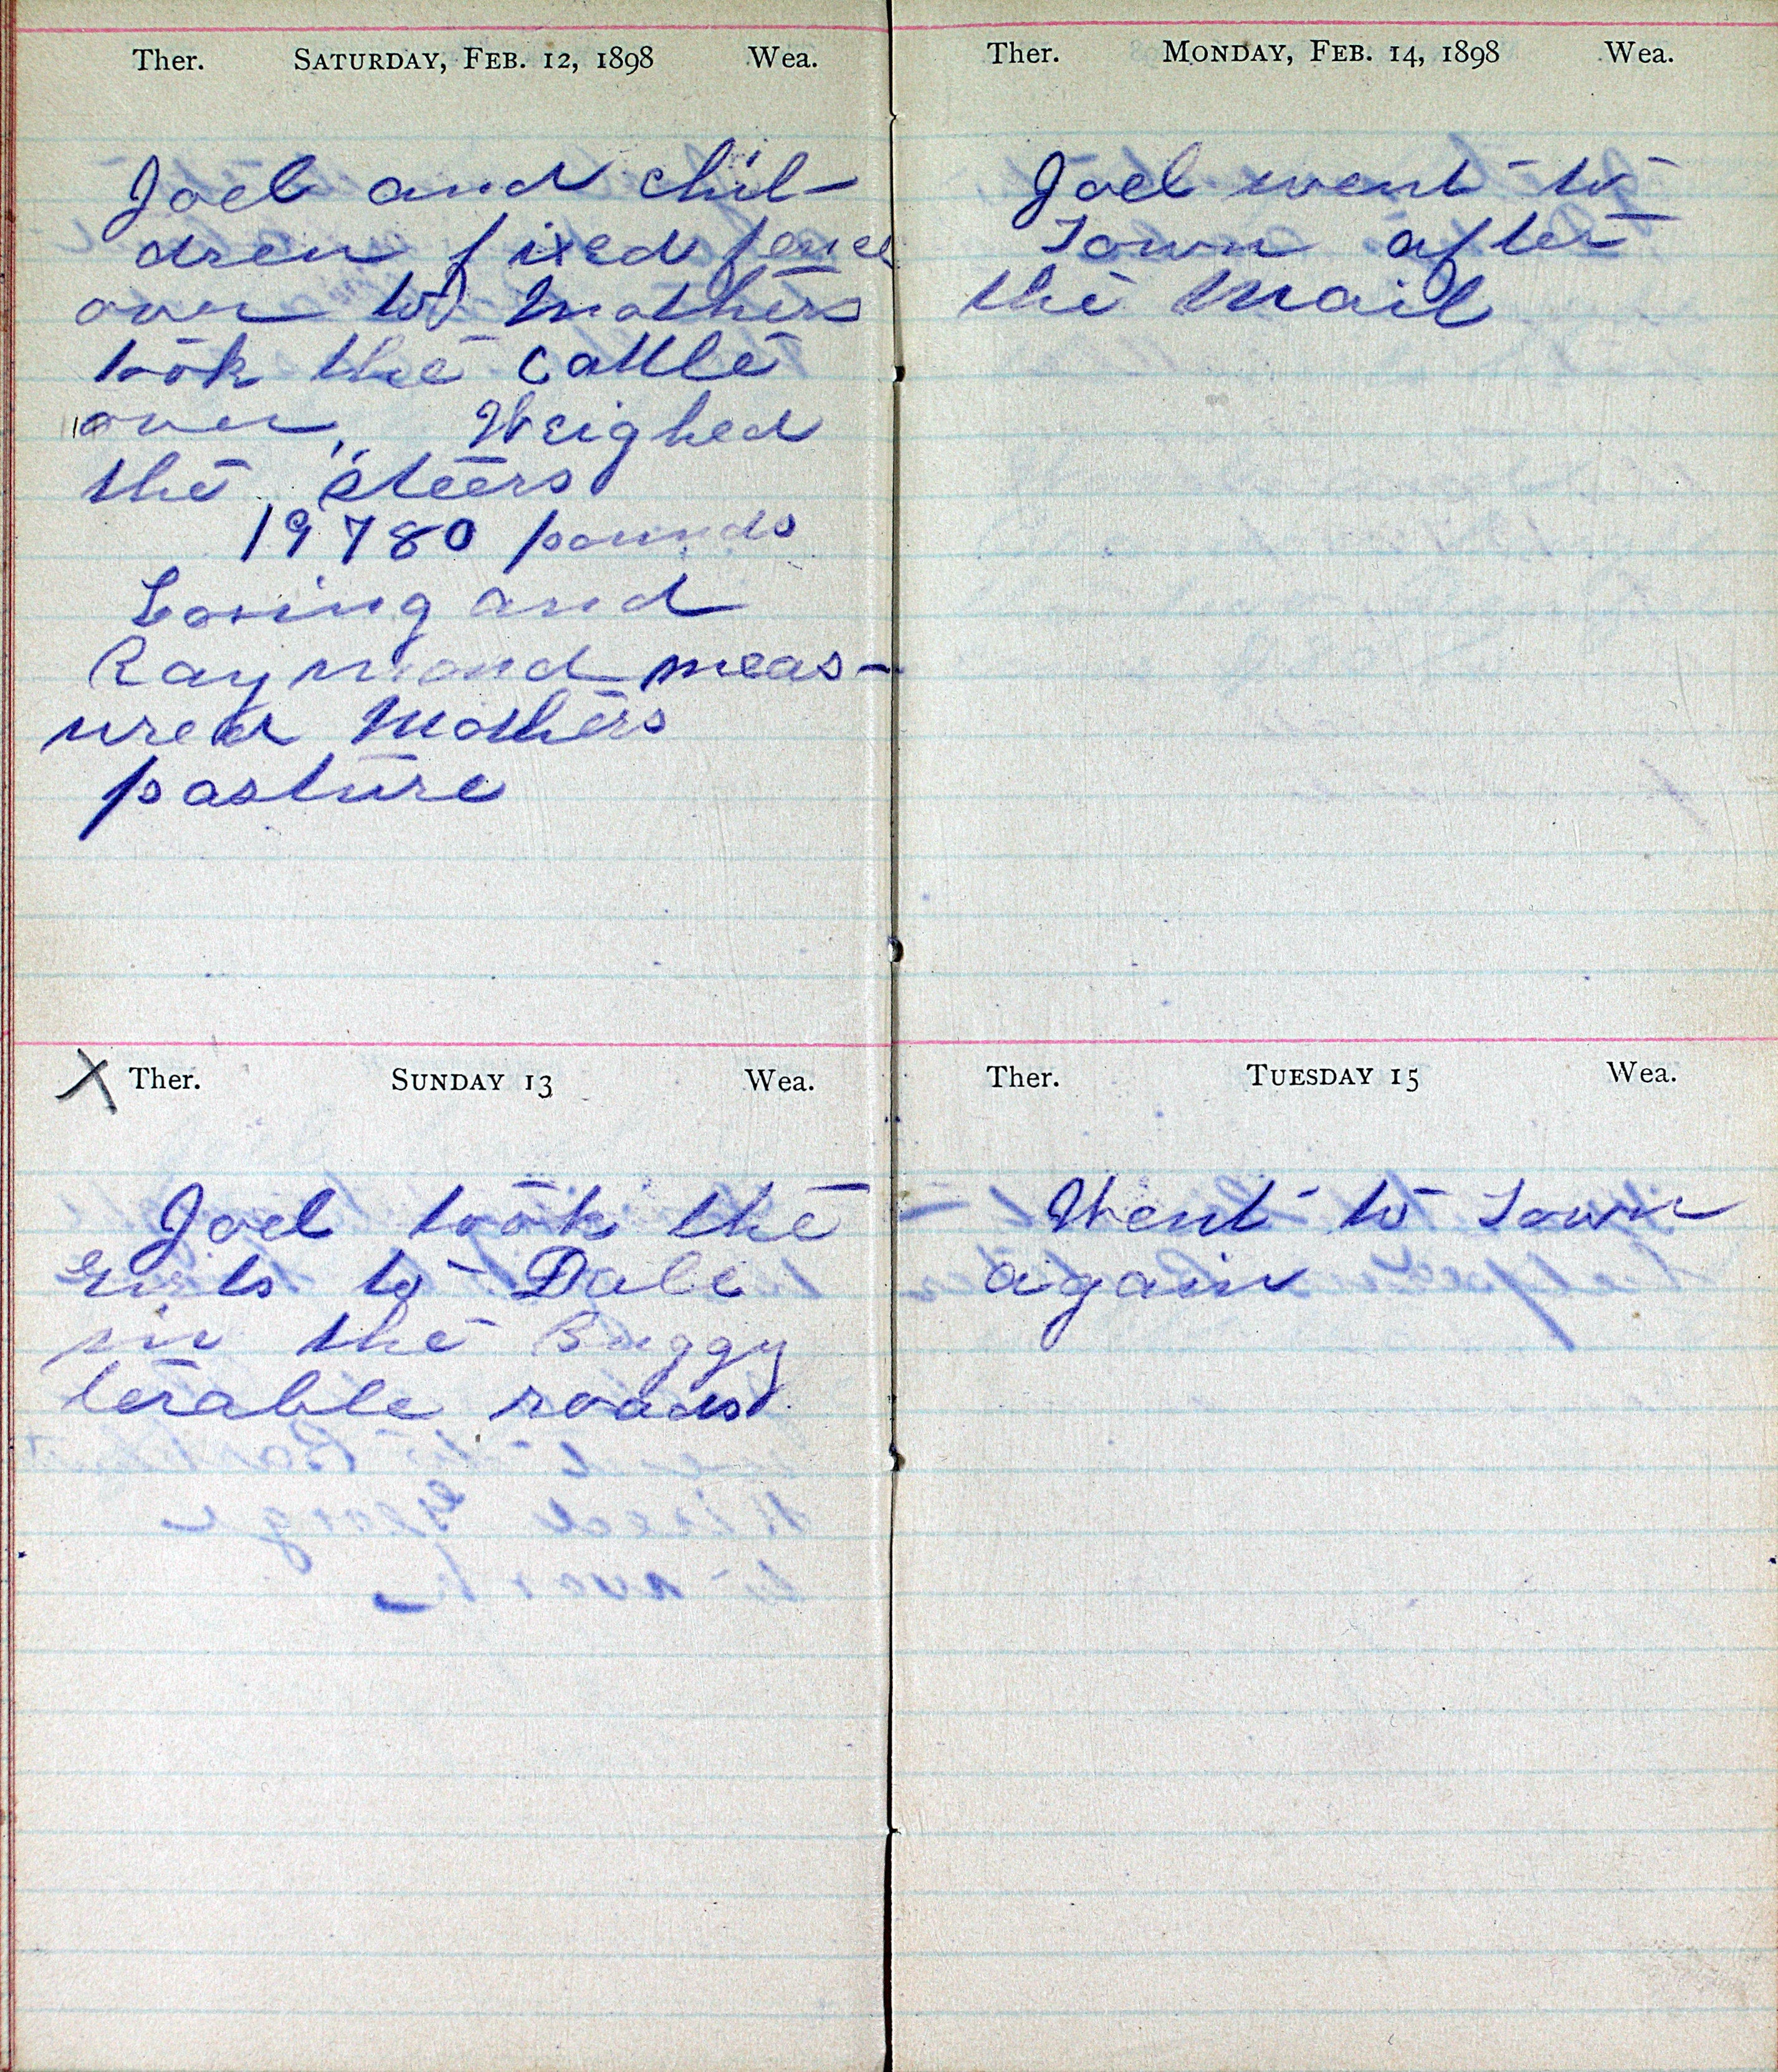 Ther. SATURDAY, FEB. 12, 1898 Wea.
Joel and chil-
dren fixed fence
over to Mothers
took the cattle
over, Weighed
the steers
19780 pounds
Loring and
Raymond meas-
ured Mothers
pasture
X Ther. SUNDAY 13 Wea.
Joel took the
girls to Dale
in the Buggy
terable roads.
Ther. MONDAY, FEB. 14, 1898 Wea.
Joel went to
Town after
the Mail
Ther. TUESDAY 15 Wea.
Went to Town
again